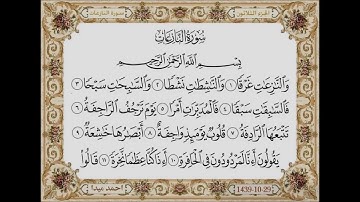 الجزء الثلاثون
سورة النازعات
سُورَةُ النَّازِعَاتِ
بِسْمِ اللَّهِ الرَّحْمَٰنِ الرَّحِيمِ
وَالنَّازِعَاتِ غَرْقًا ١ وَالنَّاشِطَاتِ نَشْطًا ٢ وَالسَّابِحَاتِ سَبْحًا ٣
فَالسَّابِقَاتِ سَبْقًا ٤ فَالْمُدَبِّرَاتِ أَمْرًا ٥ يَوْمَ تَرْجُفُ الرَّاجِفَةُ ٦
تَتْبَعُهَا الرَّادِفَةُ ٧ قُلُوبٌ يَوْمَئِذٍ وَاجِفَةٌ ٨ أَبْصَارُهَا خَاشِعَةٌ ٩
يَقُولُونَ أَءِنَّا لَمَرْدُودُونَ فِي الْحَافِرَةِ ١٠ أَءِذَا كُنَّا عِظَامًا نَّخِرَةً ١١ قَالُوا
1439-10-29
احمد ميدا